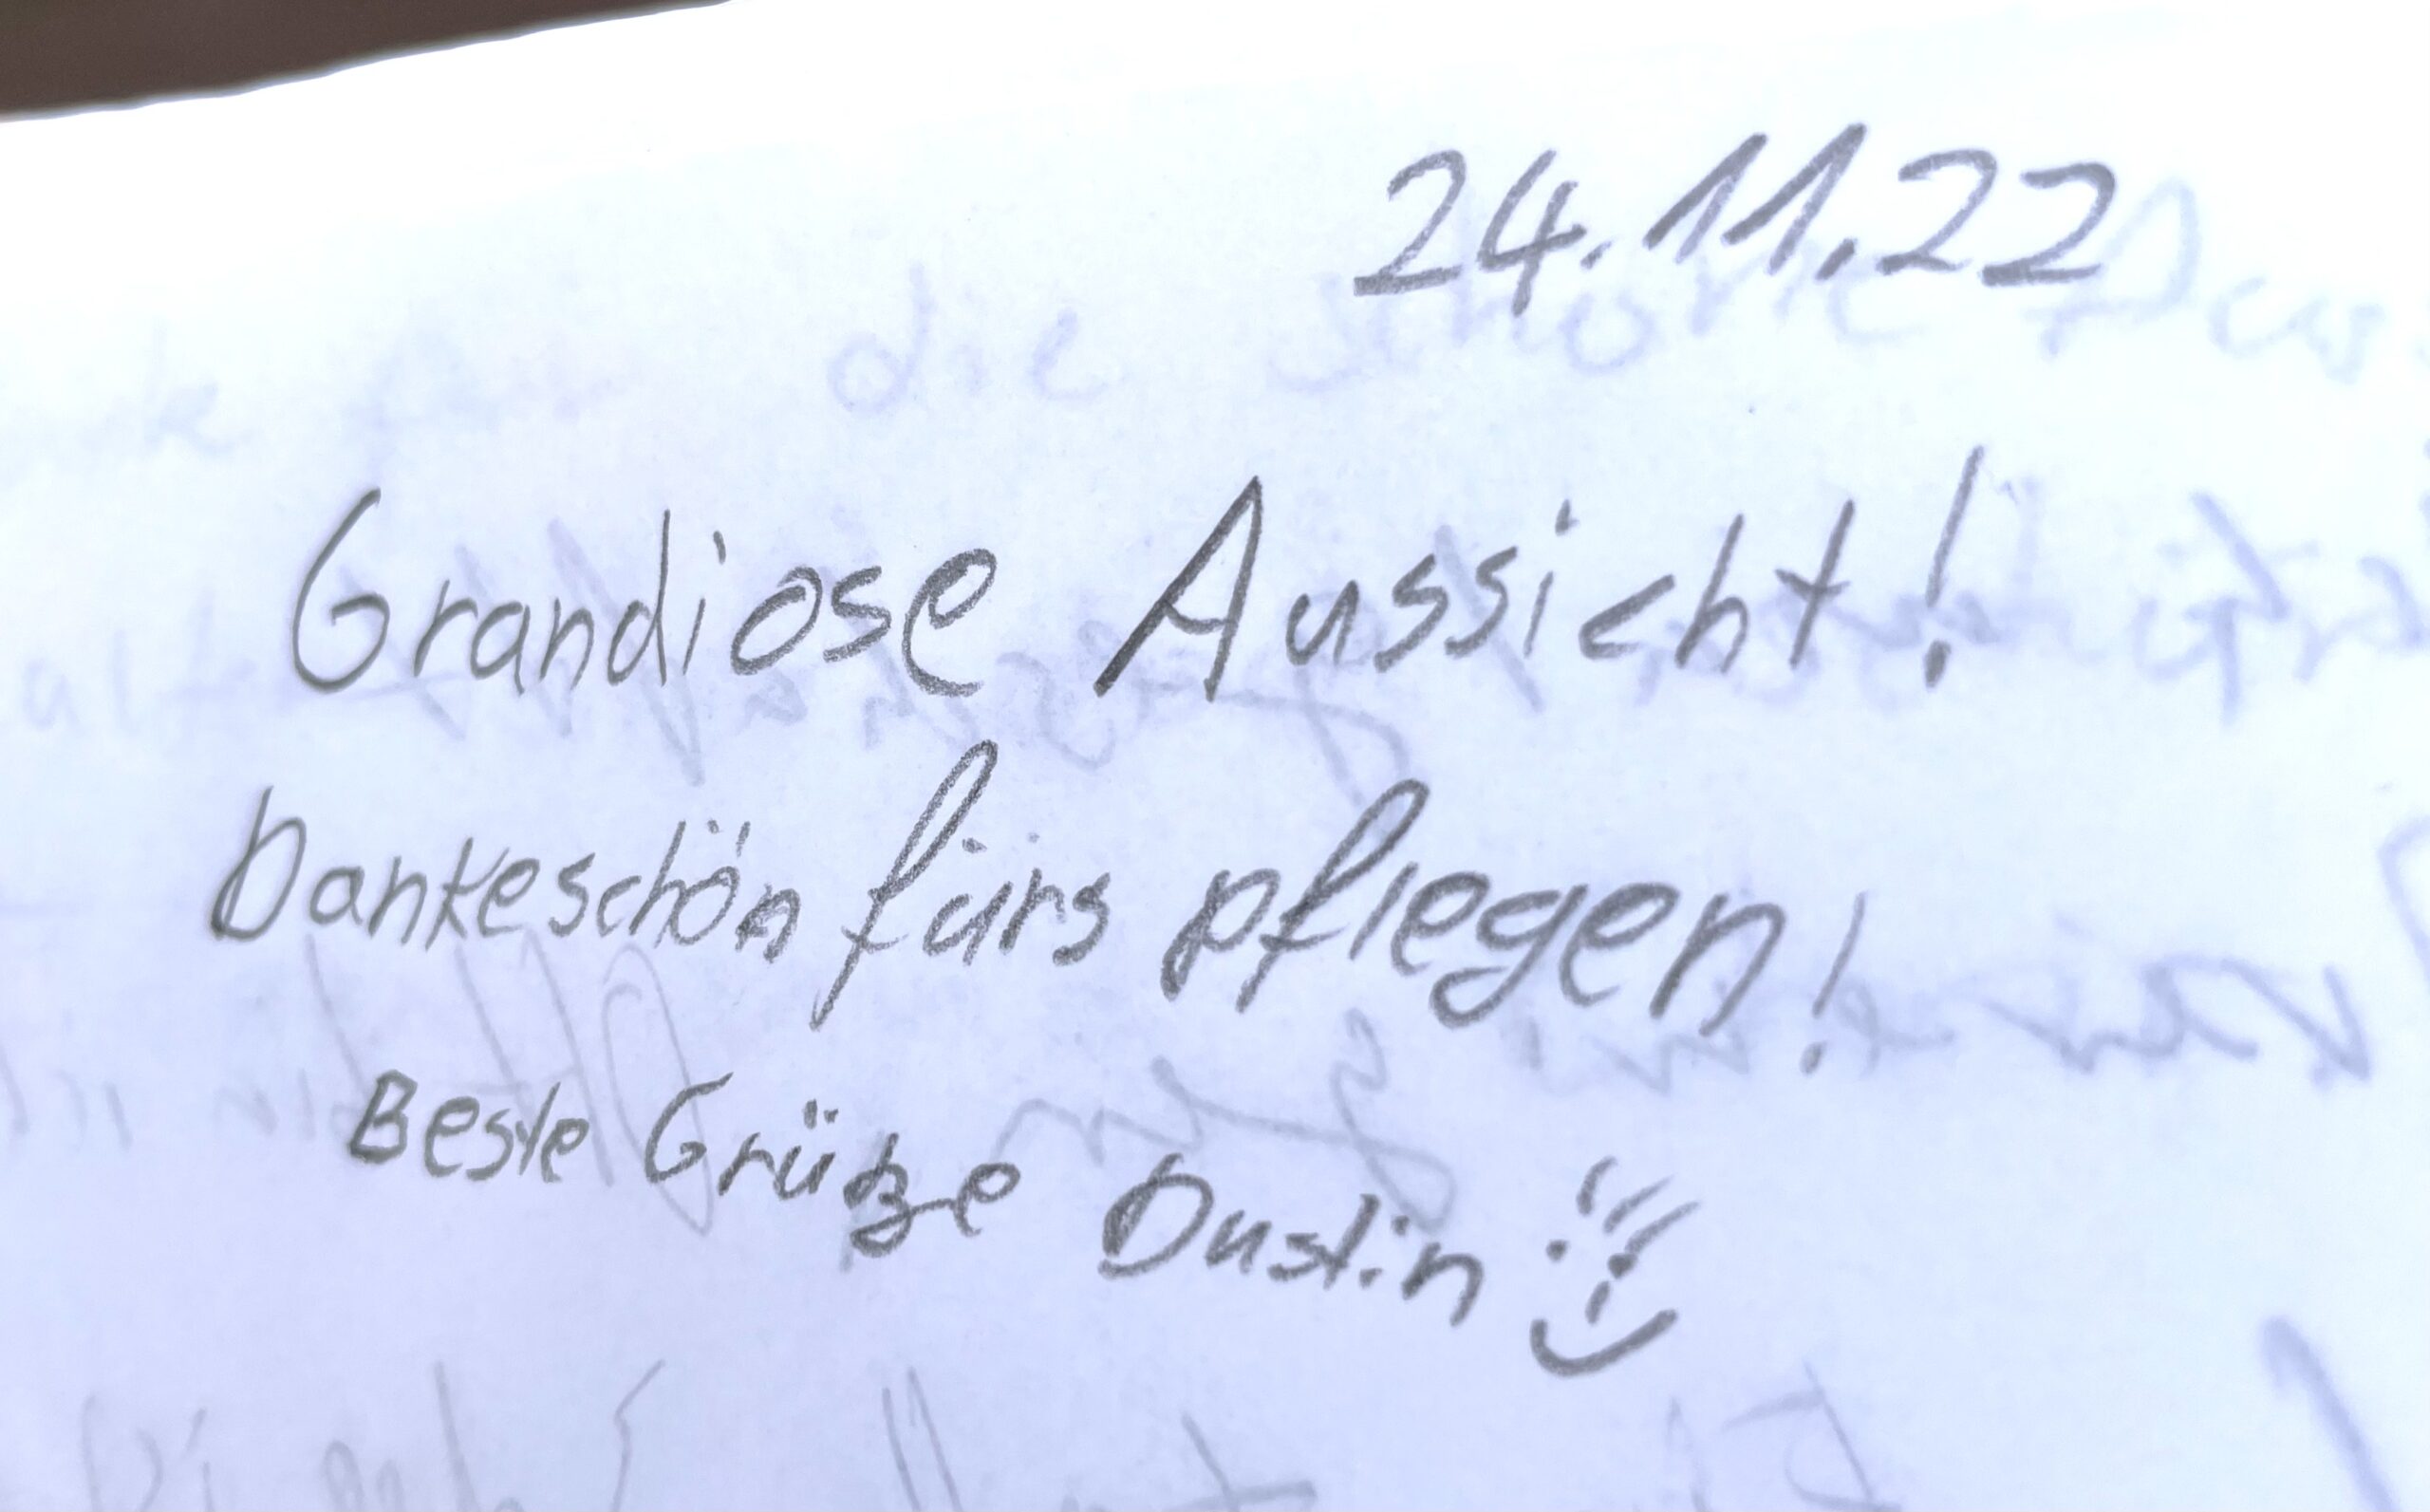 24.11.22
Grandiose Aussicht!
Dankeschön fürs pflegen!
Beste Grüße Dustin